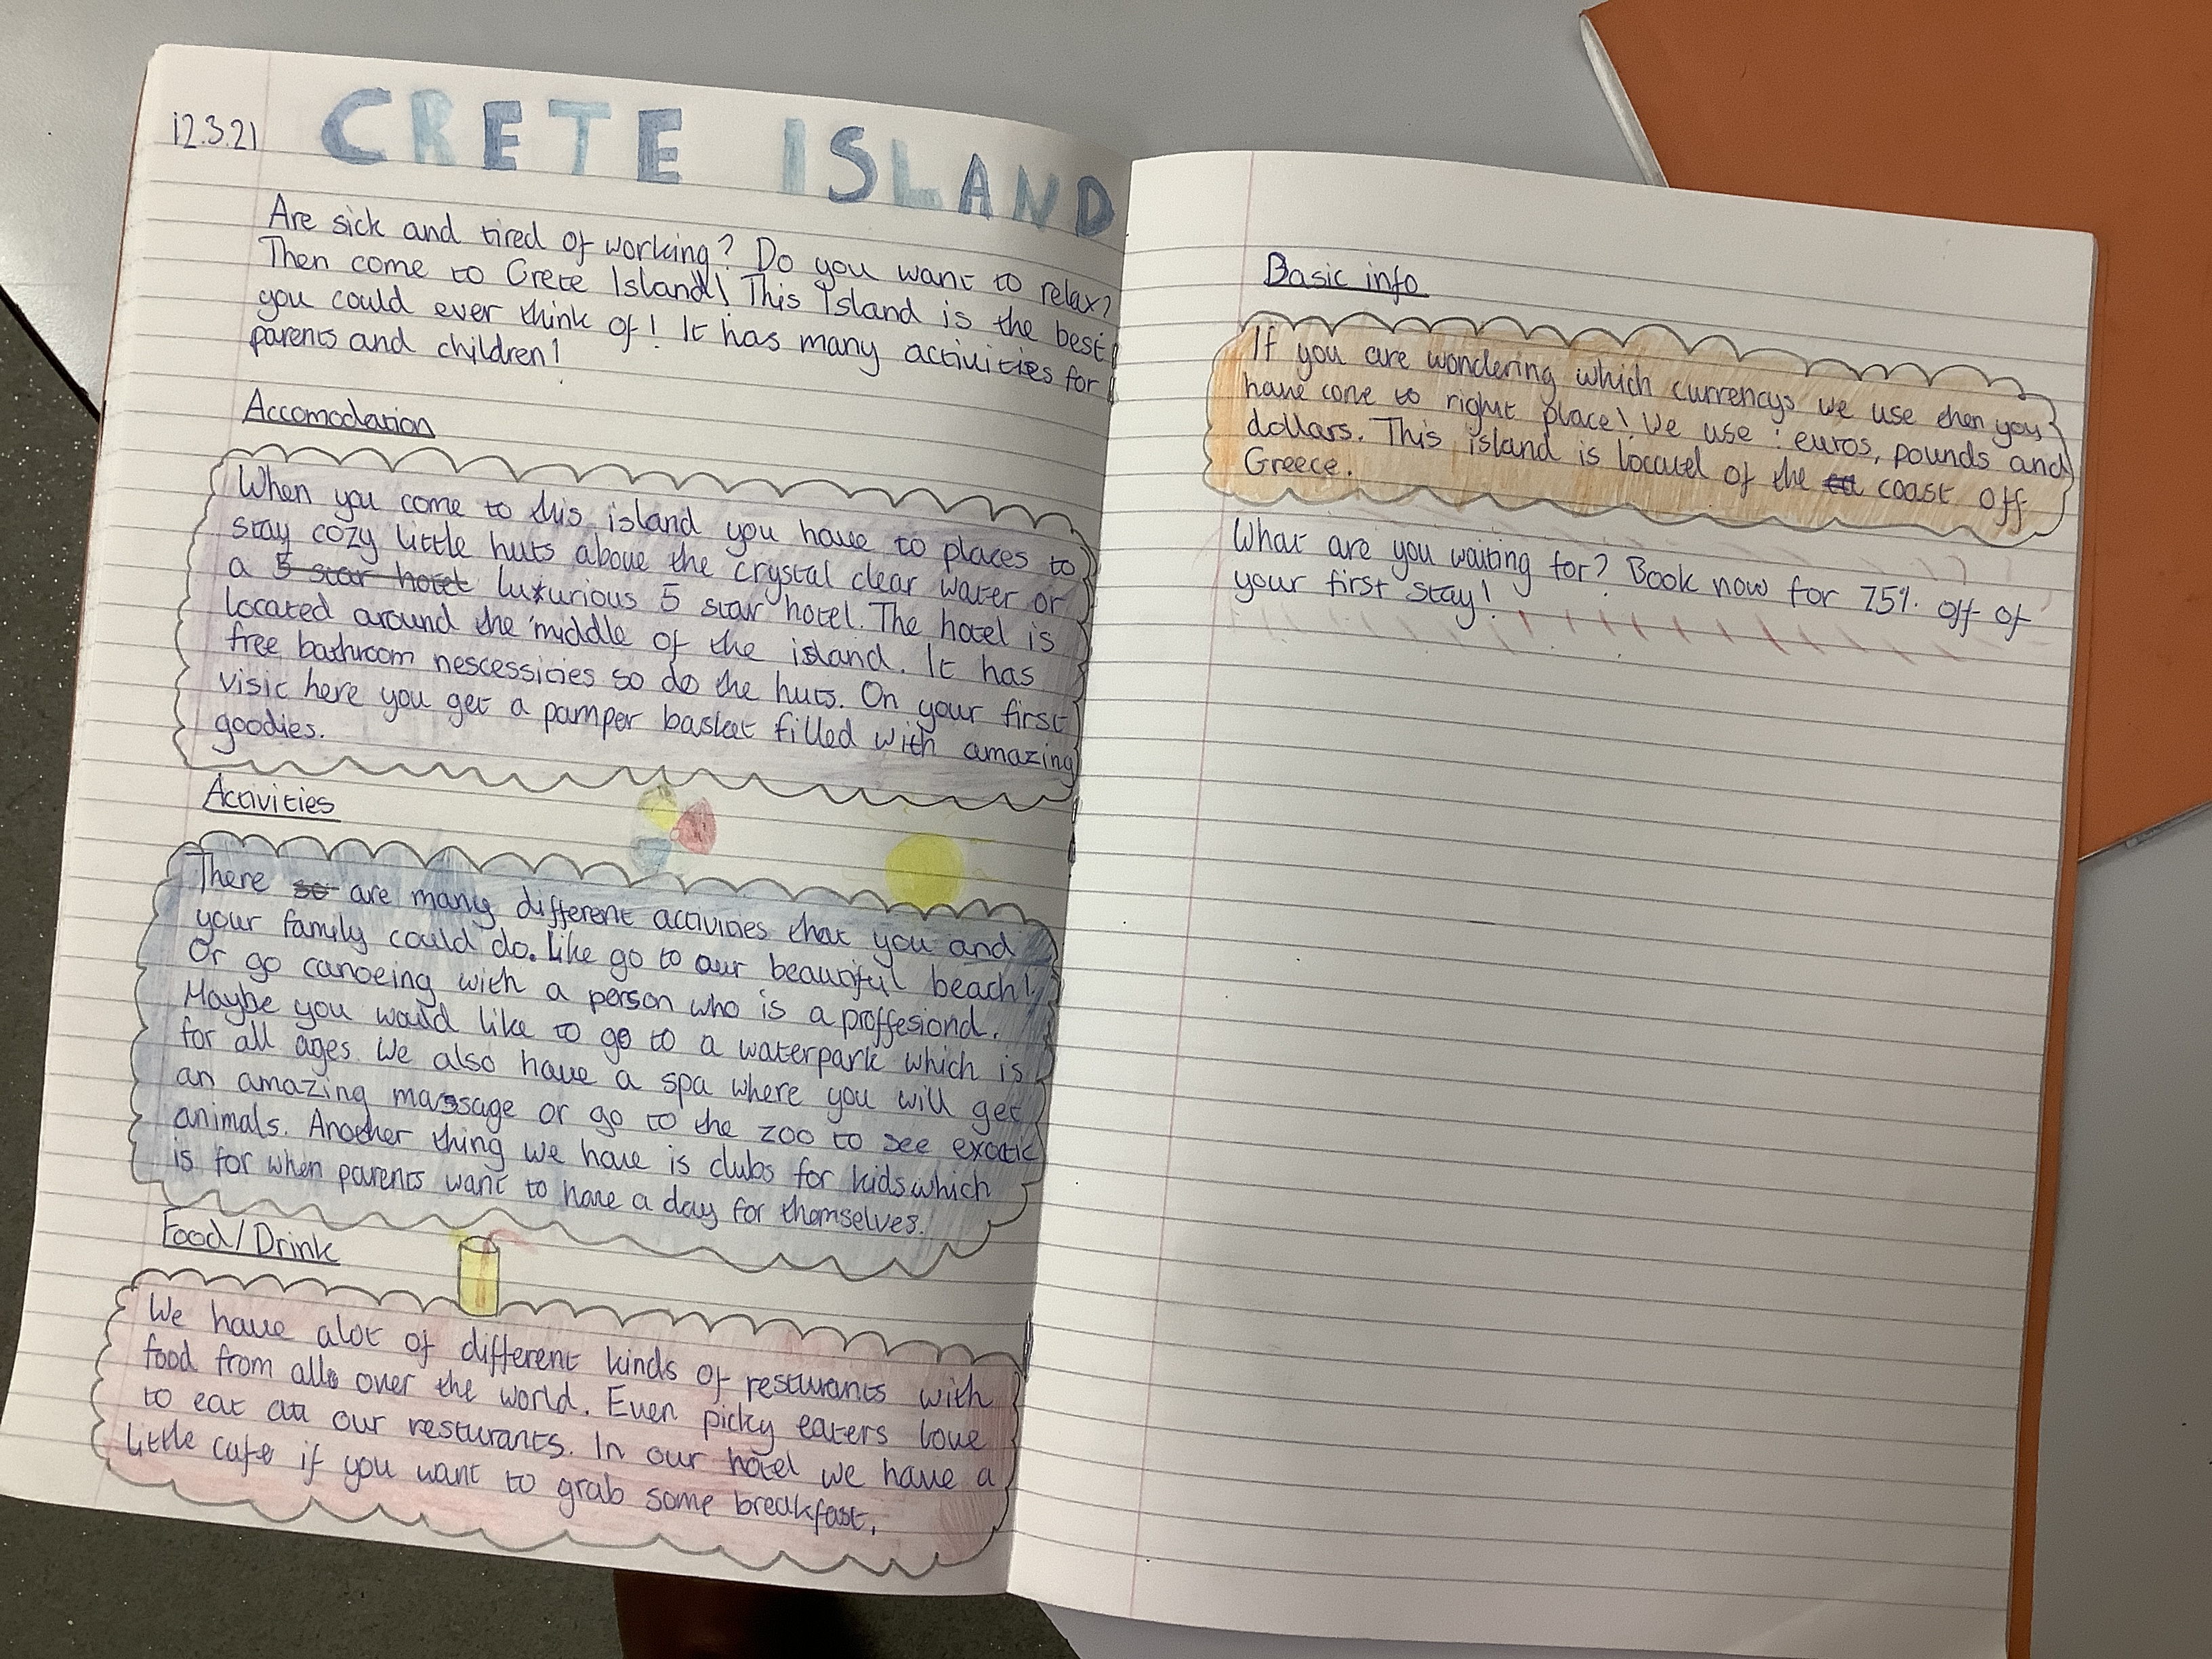 12.3.21
CRETE ISLAND
Are sick and tired of working? Do you want to relax?
Then come to Crete Island! This Island is the best
you could ever think of! It has many activities for
parents and children!
Accomodation
When you come to this island you have to places to
stay cozy little huts above the crystal clear water or
a 5 star hotel luxurious 5 star hotel. The hotel is
located around the middle of the island. It has
free bathroom nescessities so do the huts. On your first
visit here you get a pamper basket filled with amazing
goodies.
Activities
There so are many different activities that you and
your family could do. Like go to our beautiful beach!
Or go canoeing with a person who is a proffesional.
Maybe you would like to go to a waterpark which is
for all ages. We also have a spa where you will get
an amazing massage or go to the zoo to see exotic
animals. Another thing we have is clubs for kids which
is for when parents want to have a day for themselves.
Food/Drink
We have alot of different kinds of resturants with
food from all over the world. Even picky eaters love
to eat at our resturants. In our hotel we have a
little cafe if you want to grab some breakfast.
Basic info
If you are wondering which currencys we use then you
have come to right place! We use : euros, pounds and
dollars. This island is located of the coast off
Greece.
What are you waiting for? Book now for 75% off of
your first stay!